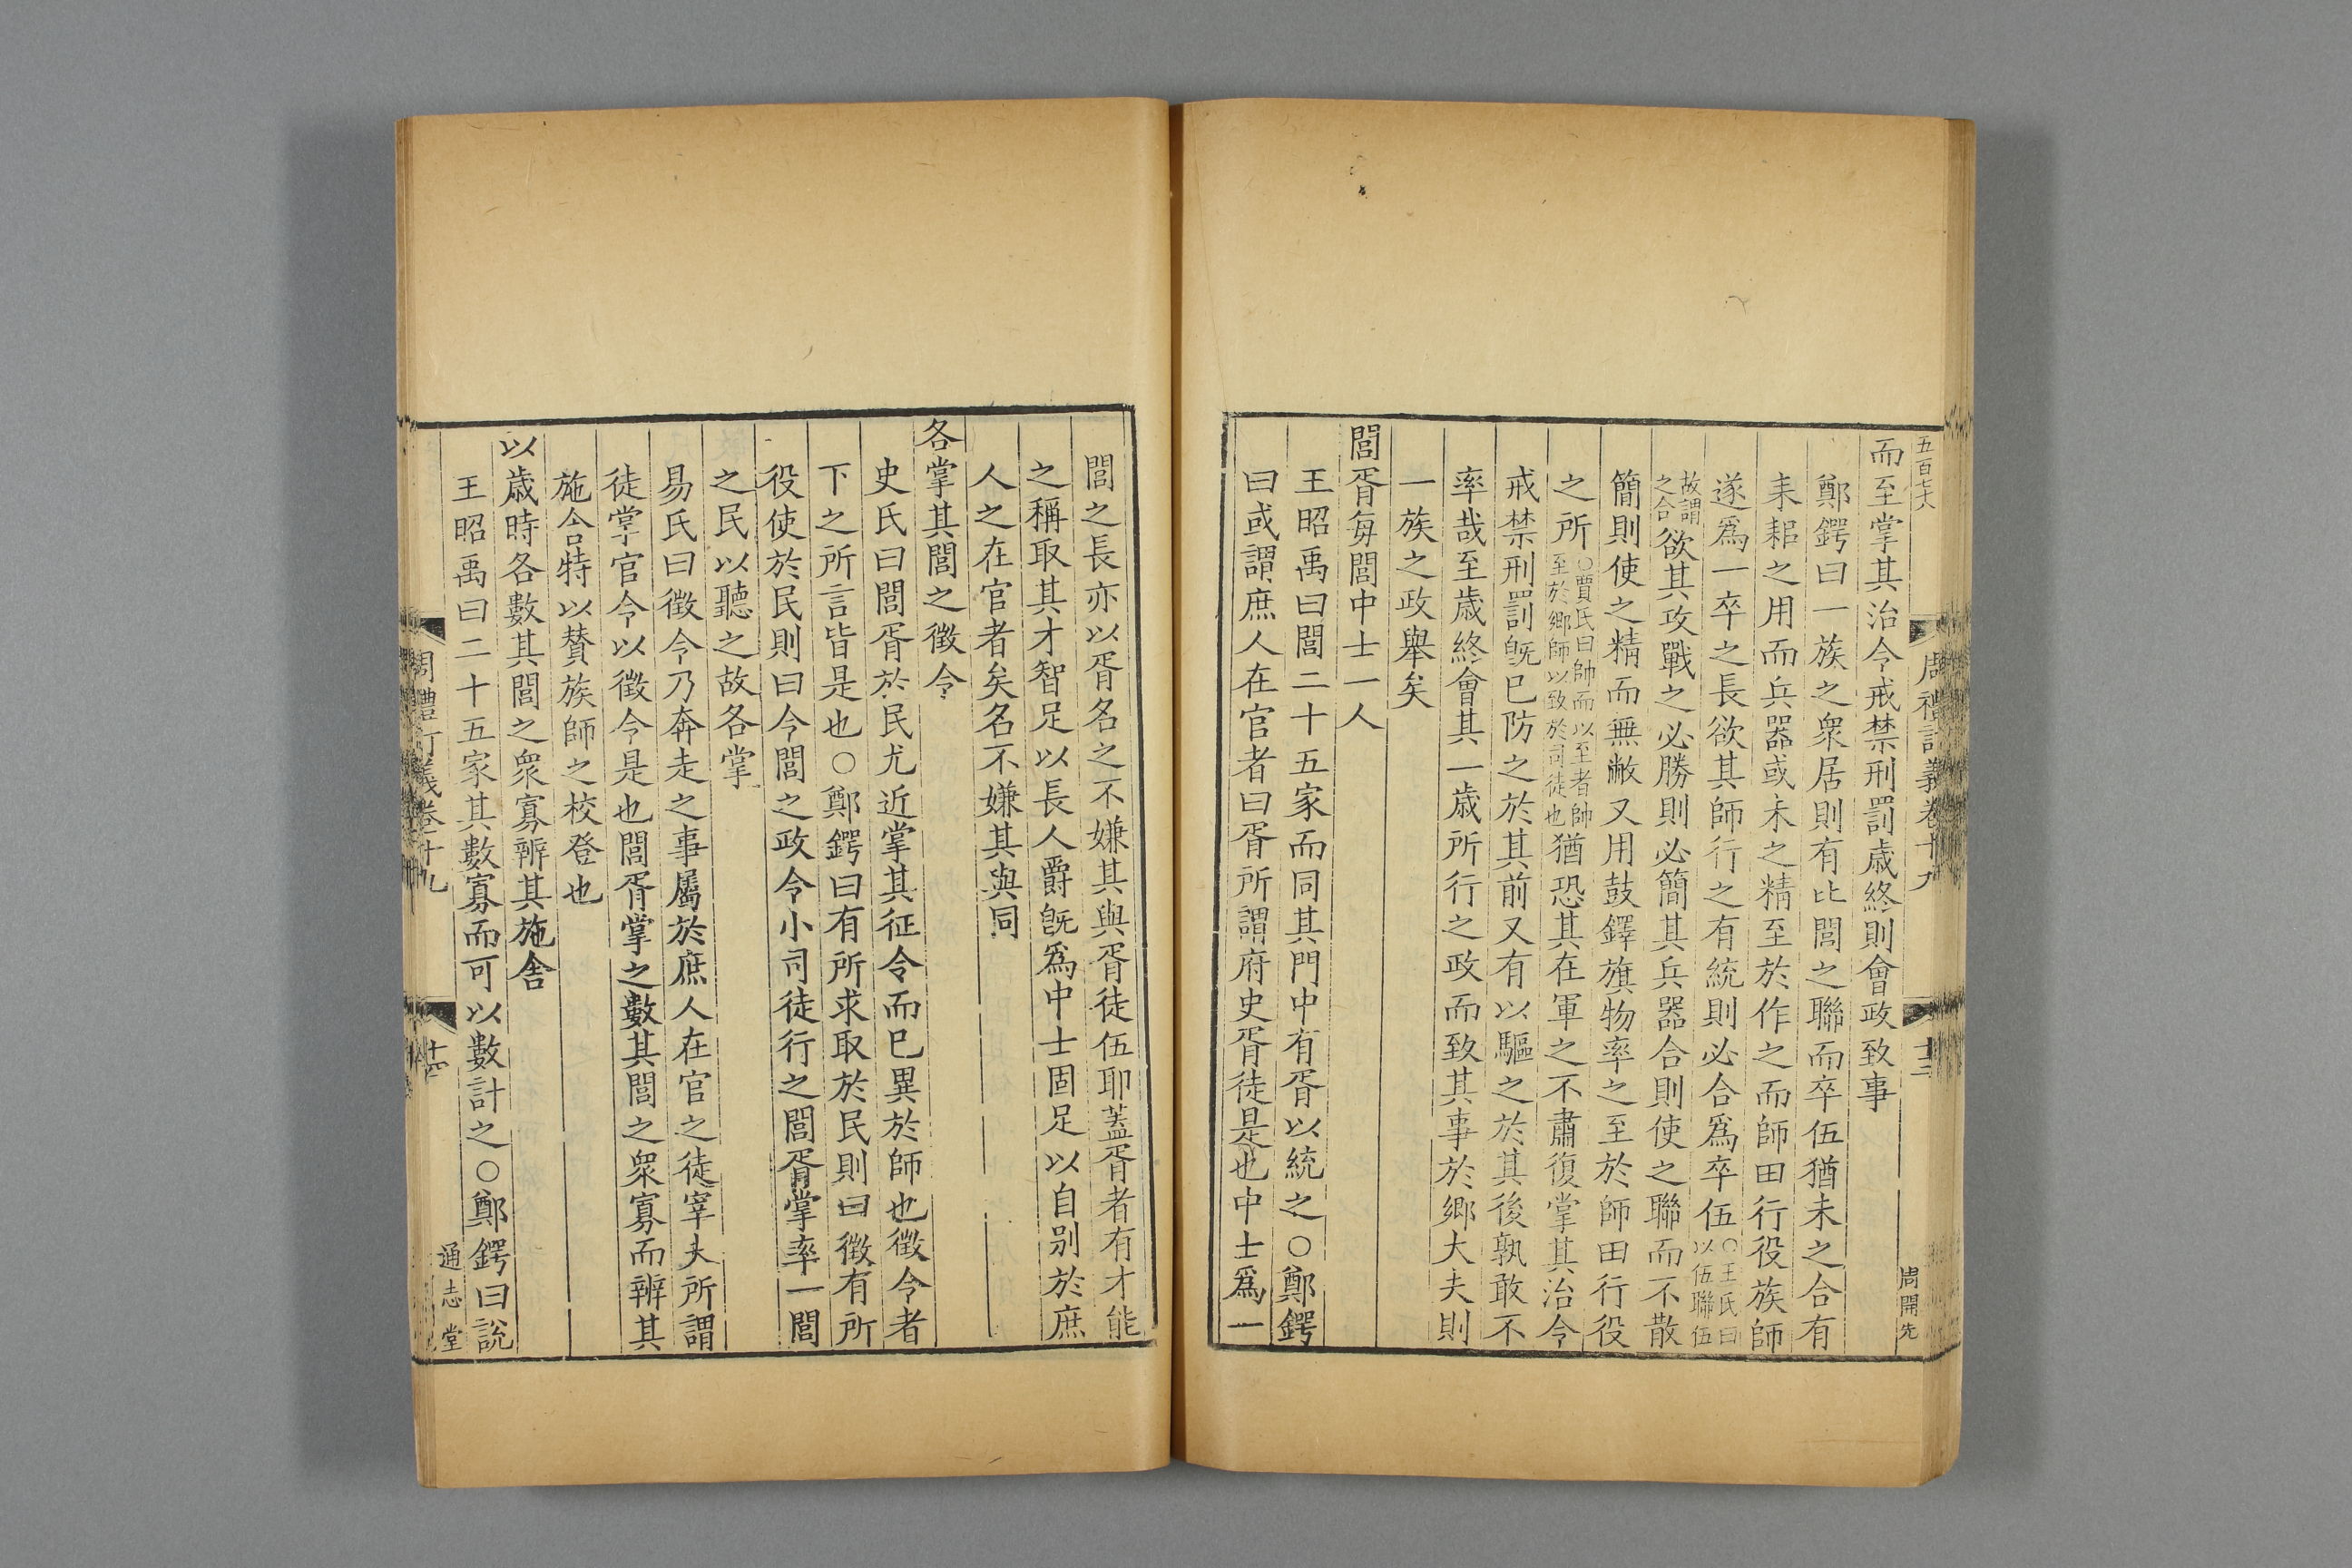 五百七六
周禮訂義卷十九
十三
周開先
而至掌其治令戒禁刑罰歲終則會政致事
鄭鍔曰一族之衆居則有比閭之聯而卒伍猶未之合有
耒耜之用而兵器或未之精至於作之而師田行役族師
遂爲一卒之長欲其師行之有統則必合爲卒伍○王氏曰以伍聯伍
故謂之合欲其攻戰之必勝則必簡其兵器合則使之聯而不散
簡則使之精而無敝又用鼓鐸旗物率之至於師田行役
之所○賈氏曰帥而以至者帥至於鄉師以致於司徒也猶恐其在軍之不肅復掌其治令
戒禁刑罰旣已防之於其前又有以驅之於其後孰敢不
率哉至歲終會其一歲所行之政而致其事於鄉大夫則
一族之政舉矣
閭胥每閭中士一人
王昭禹曰閭二十五家而同其門中有胥以統之○鄭鍔
曰或謂庶人在官者曰胥所謂府史胥徒是也中士爲一
閭之長亦以胥名之不嫌其與胥徒伍耶蓋胥者有才能
之稱取其才智足以長人爵旣爲中士固足以自別於庶
人之在官者矣名不嫌其與同
各掌其閭之徵令
史氏曰閭胥於民尤近掌其征令而已異於師也徵令者
下之所言皆是也○鄭鍔曰有所求取於民則曰徵有所
役使於民則曰令閭之政令小司徒行之閭胥掌率一閭
之民以聽之故各掌
易氏曰徵令乃奔走之事屬於庶人在官之徒宰夫所謂
徒掌官令以徵令是也閭胥掌之數其閭之衆寡而辨其
施舍特以賛族師之校登也
以歲時各數其閭之衆寡辨其施舍
王昭禹曰二十五家其數寡而可以數計之○鄭鍔曰說
周禮訂義卷十九
十四
通志堂